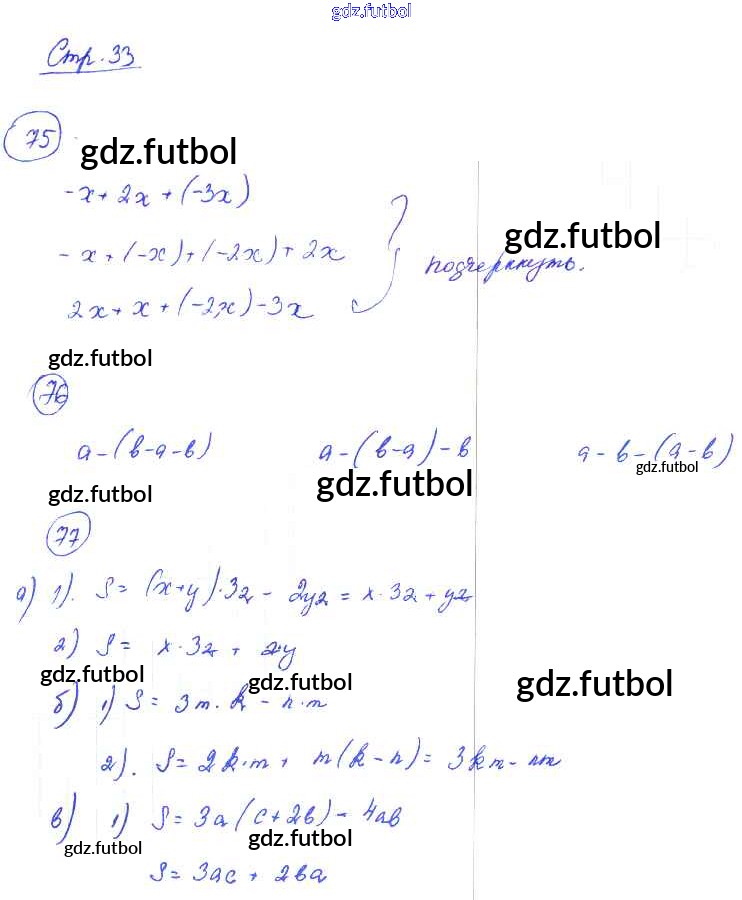 gdz.futbol
Стр. 33
75
gdz.futbol
-x + 2x + (-3x)
gdz.futbol
- x + (-x) + (-2x) + 2x
подчеркнуть.
2x + x + (-2x) - 3x
gdz.futbol
76
a - (b - a - b) a - (b - a) - b a - b - (a - b)
gdz.futbol
gdz.futbol gdz.futbol
77
а) 1). S = (x+y)·3z - 2yz = x·3z + yz
2) S = x·3z + zy
gdz.futbol gdz.futbol gdz.futbol
б) 1) S = 3m·k - n·m
2). S = 2k·m + m(k - n) = 3km - nm
в) 1) S = 3a(c + 2b) - 4ab
gdz.futbol gdz.futbol
S = 3ac + 2ba